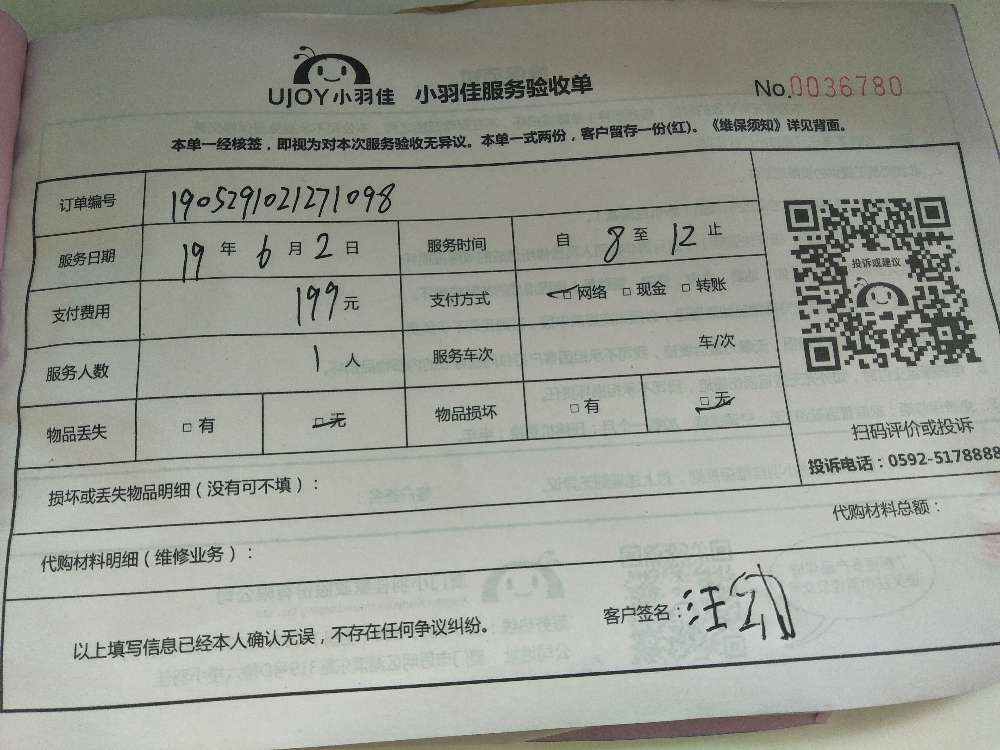 UJOY小羽佳 小羽佳服务验收单 No.0036780
本单一经核签，即视为对本次服务验收无异议。本单一式两份，客户留存一份(红)。《维保须知》详见背面。
订单编号 1905291021271098
服务日期 19 年 6 月 2 日 服务时间 自 8 至 12 止
支付费用 199 元 支付方式 □ 网络 □ 现金 □ 转账
服务人数 1 人 服务车次 车/次
物品丢失 □ 有 □ 无 物品损坏 □ 有 □ 无
投诉或建议
扫码评价或投诉
投诉电话：0592-5178888
损坏或丢失物品明细（没有可不填）：
代购材料明细（维修业务）： 代购材料总额：
以上填写信息已经本人确认无误，不存在任何争议纠纷。 客户签名：汪